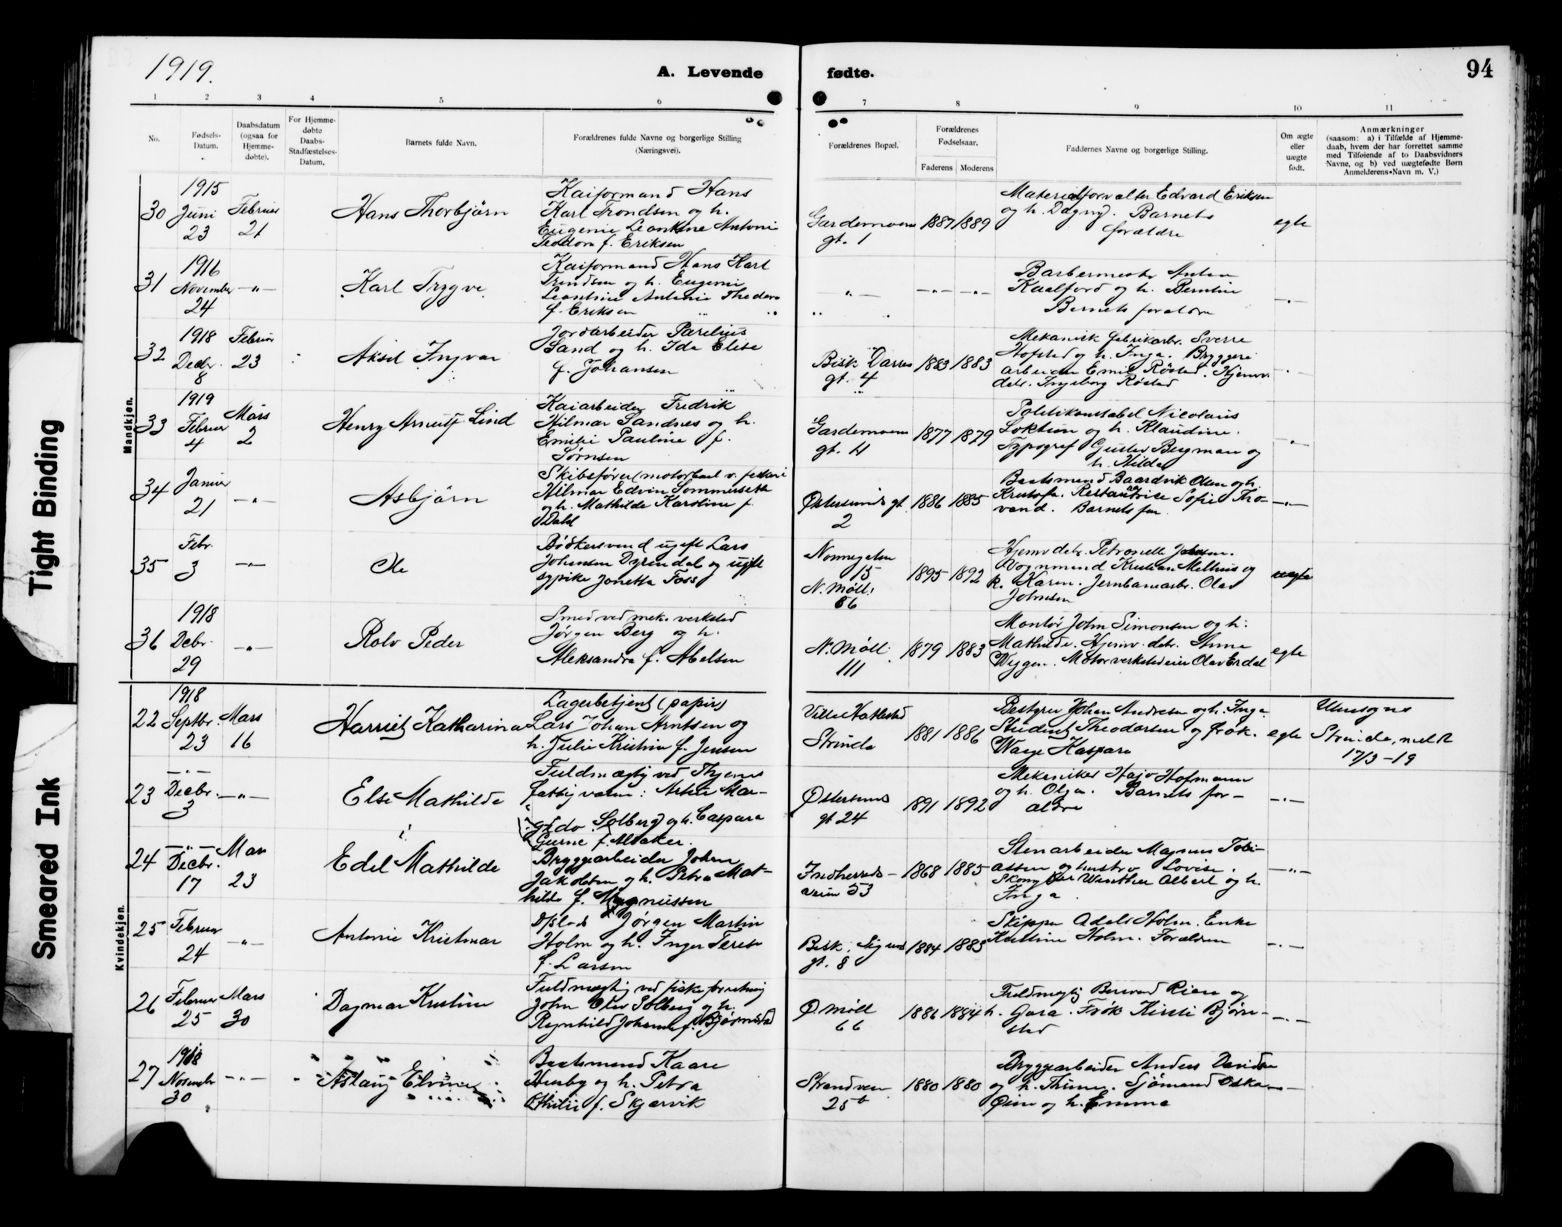 1919.
A. Levende fødte.
94
1 2 3 4 5 6 7 8 9 10 11
No.
Fødsels-
Datum.
Daabsdatum
(ogsaa for
Hjemme-
døbte).
For Hjemme-
døbte
Daabs-
Stadfæstelses-
Datum.
Barnets fulde Navn.
Forældrenes fulde Navne og borgerlige Stilling
(Næringsvei).
Forældrenes Bopæl.
Forældrenes
Fødselsaar.
Faderens Moderens
Faddernes Navne og borgerlige Stilling.
Om ægte
eller
uægte
født.
Anmærkninger
(saasom: a) i Tilfælde af Hjemme-
daab, hvem der har forrettet samme
med Tilføiende af to Daabsvidners
Navne, og b) ved uægtefødte Børn
Anmelderens Navn m. V.)
Mandkjøn.
30
1915
Juni
23
Februar
21
Hans Thorbjørn
Kaiformand Hans
Karl Trondsen og h.
Eugenie Leontine Antonie
f. Eriksen
gt. 1
1887 1889
Materialforvalter Edvard Eriksen
og h. Dagny. Barnets
forældre
egte
31
1916
November
24
-"-
Karl Trygve
Kaiformand Hans Karl
Trondsen og h. Eugenie
Leontine Antonie Theodora
f. Eriksen
"
-"- -"-
Barbermester Anton
og h. Berntine
Barnets forældre
-"-
32
1918
Decbr.
8
Februar
23
Aksel Ingvar
Jordarbeider Parelius
Sand og h. Ida Elise
f. Johansen
Bisk. Darres
gt. 4
1883 1883
Mekanisk fabrikarb. Sverre
Hofstad og h. Inga. Bryggeri
arbeider Emil Røstad. Hjemv.
datr. Ingeborg Røstad
-"-
33
1919
Februar
4
Mars
2
Henry Arnulf Lind
Kaiarbeider Fredrik
Hilmar Sandnes og h.
Emilie Pauline f.
Sørnsen
gt. 4
1877 1879
Politikonstabel Nicolaus
og h. Klaudine.
Typograf Gustav Bergman og
h. Hilda
-"-
34
Januar
21
-"-
Asbjørn
Skibsfører (motorbaat v. fiskeri
Hilmar Edvin Sommerseth
og h. Mathilde Karoline f.
Dahl
Østersunds gt.
2
1886 1885
Baatsmand Baardvik Olsen og h.
Barnets far
-"-
35
Febr.
3
-"-
Ole
Bødkersvend ugift Lars
Johansen Dyrendal og ugift
sypike Jonetta Foss
Nonnegaten
15
N. Møll.
86
1895 1892
Hjemv. datr. Petronelle
Vognmand Kristian Melhus og
h. Karen. Jernbanearb. Olav
Johnsen
uegte
36
1918
Decbr.
29
-"-
Rolv Peder
Smed ved mek. verksted
Jørgen Berg og h.
Aleksandra f. Melsen
N. Møll.
111
1879 1883
Montør John Simonsen og h.
Mathilde. Hjemv. datr. Anna
Wiggen. Motorverkstedeier Olav Erdal
egte
Kvindekjøn.
22
1918
Septbr.
23
Mars
16
Harriet Katharina
Lagerbetjent (papir)
Lars Johan Arntsen og
h. Julie Kristine f. Jensen
Strinda
1881 1886
Bestyrer Johan Andresen og h. Inga
Student Theodorsen og frøk.
Waage Kaspara
egte
Utensogns
Strinda, meldt
17/3-19
23
-"-
Decbr.
3
-"-
Else Mathilde
Fuldmægtig ved Thjems
fattigvæsen: Arthur Mar-
Solberg og h. Caspara
f. Aaker.
Østersunds
gt 24
1891 1892
Mekaniker Hajo Hofmann
og h. Olga. Barnets for-
ældre
-"-
24
-"-
Decbr.
17
Mars
23
Edel Mathilde
Bryggearbeider Johan
Jakobsen og h. Petra Mat-
hilde f. Magnussen
Indherreds-
veien 53
1868 1885
Stenarbeider Magnus Tobi-
assen og hustru Lovise.
Albert og h.
Inga.
-"-
25
Februar
24
-"-
Antonie Kristmar
Jørgen Martin
Holm og h. Inger Terese
f. Larsen
Bisk. Sigurds
gt. 8
1884 1885
Skipper Adolf Holm. Enke
Kristine Holm. Forældrene
-"-
26
Februar
25
Mars
30
Dagmar Kristine
Fuldmægtig ved fiskeforretning
John Olav Solberg og h.
Ragnhild Johanne f. Bjørnstad
Ø. Møll.
66
1886 1884
Fuldmægtig
h. Gara. Frøk. Kirsti Bjørn-
stad
-"-
27
1918
November
30
-"-
Aslaug Elvine
Baatsmand Kaare
Husby og h. Petra
Othilie f. Skjærvik
Strandveien
25b
1880 1880
Bryggearbeider Anders
og h. Sjømand Oskar
Øien og h. Emma
-"-
Tight Binding
Smeared Ink